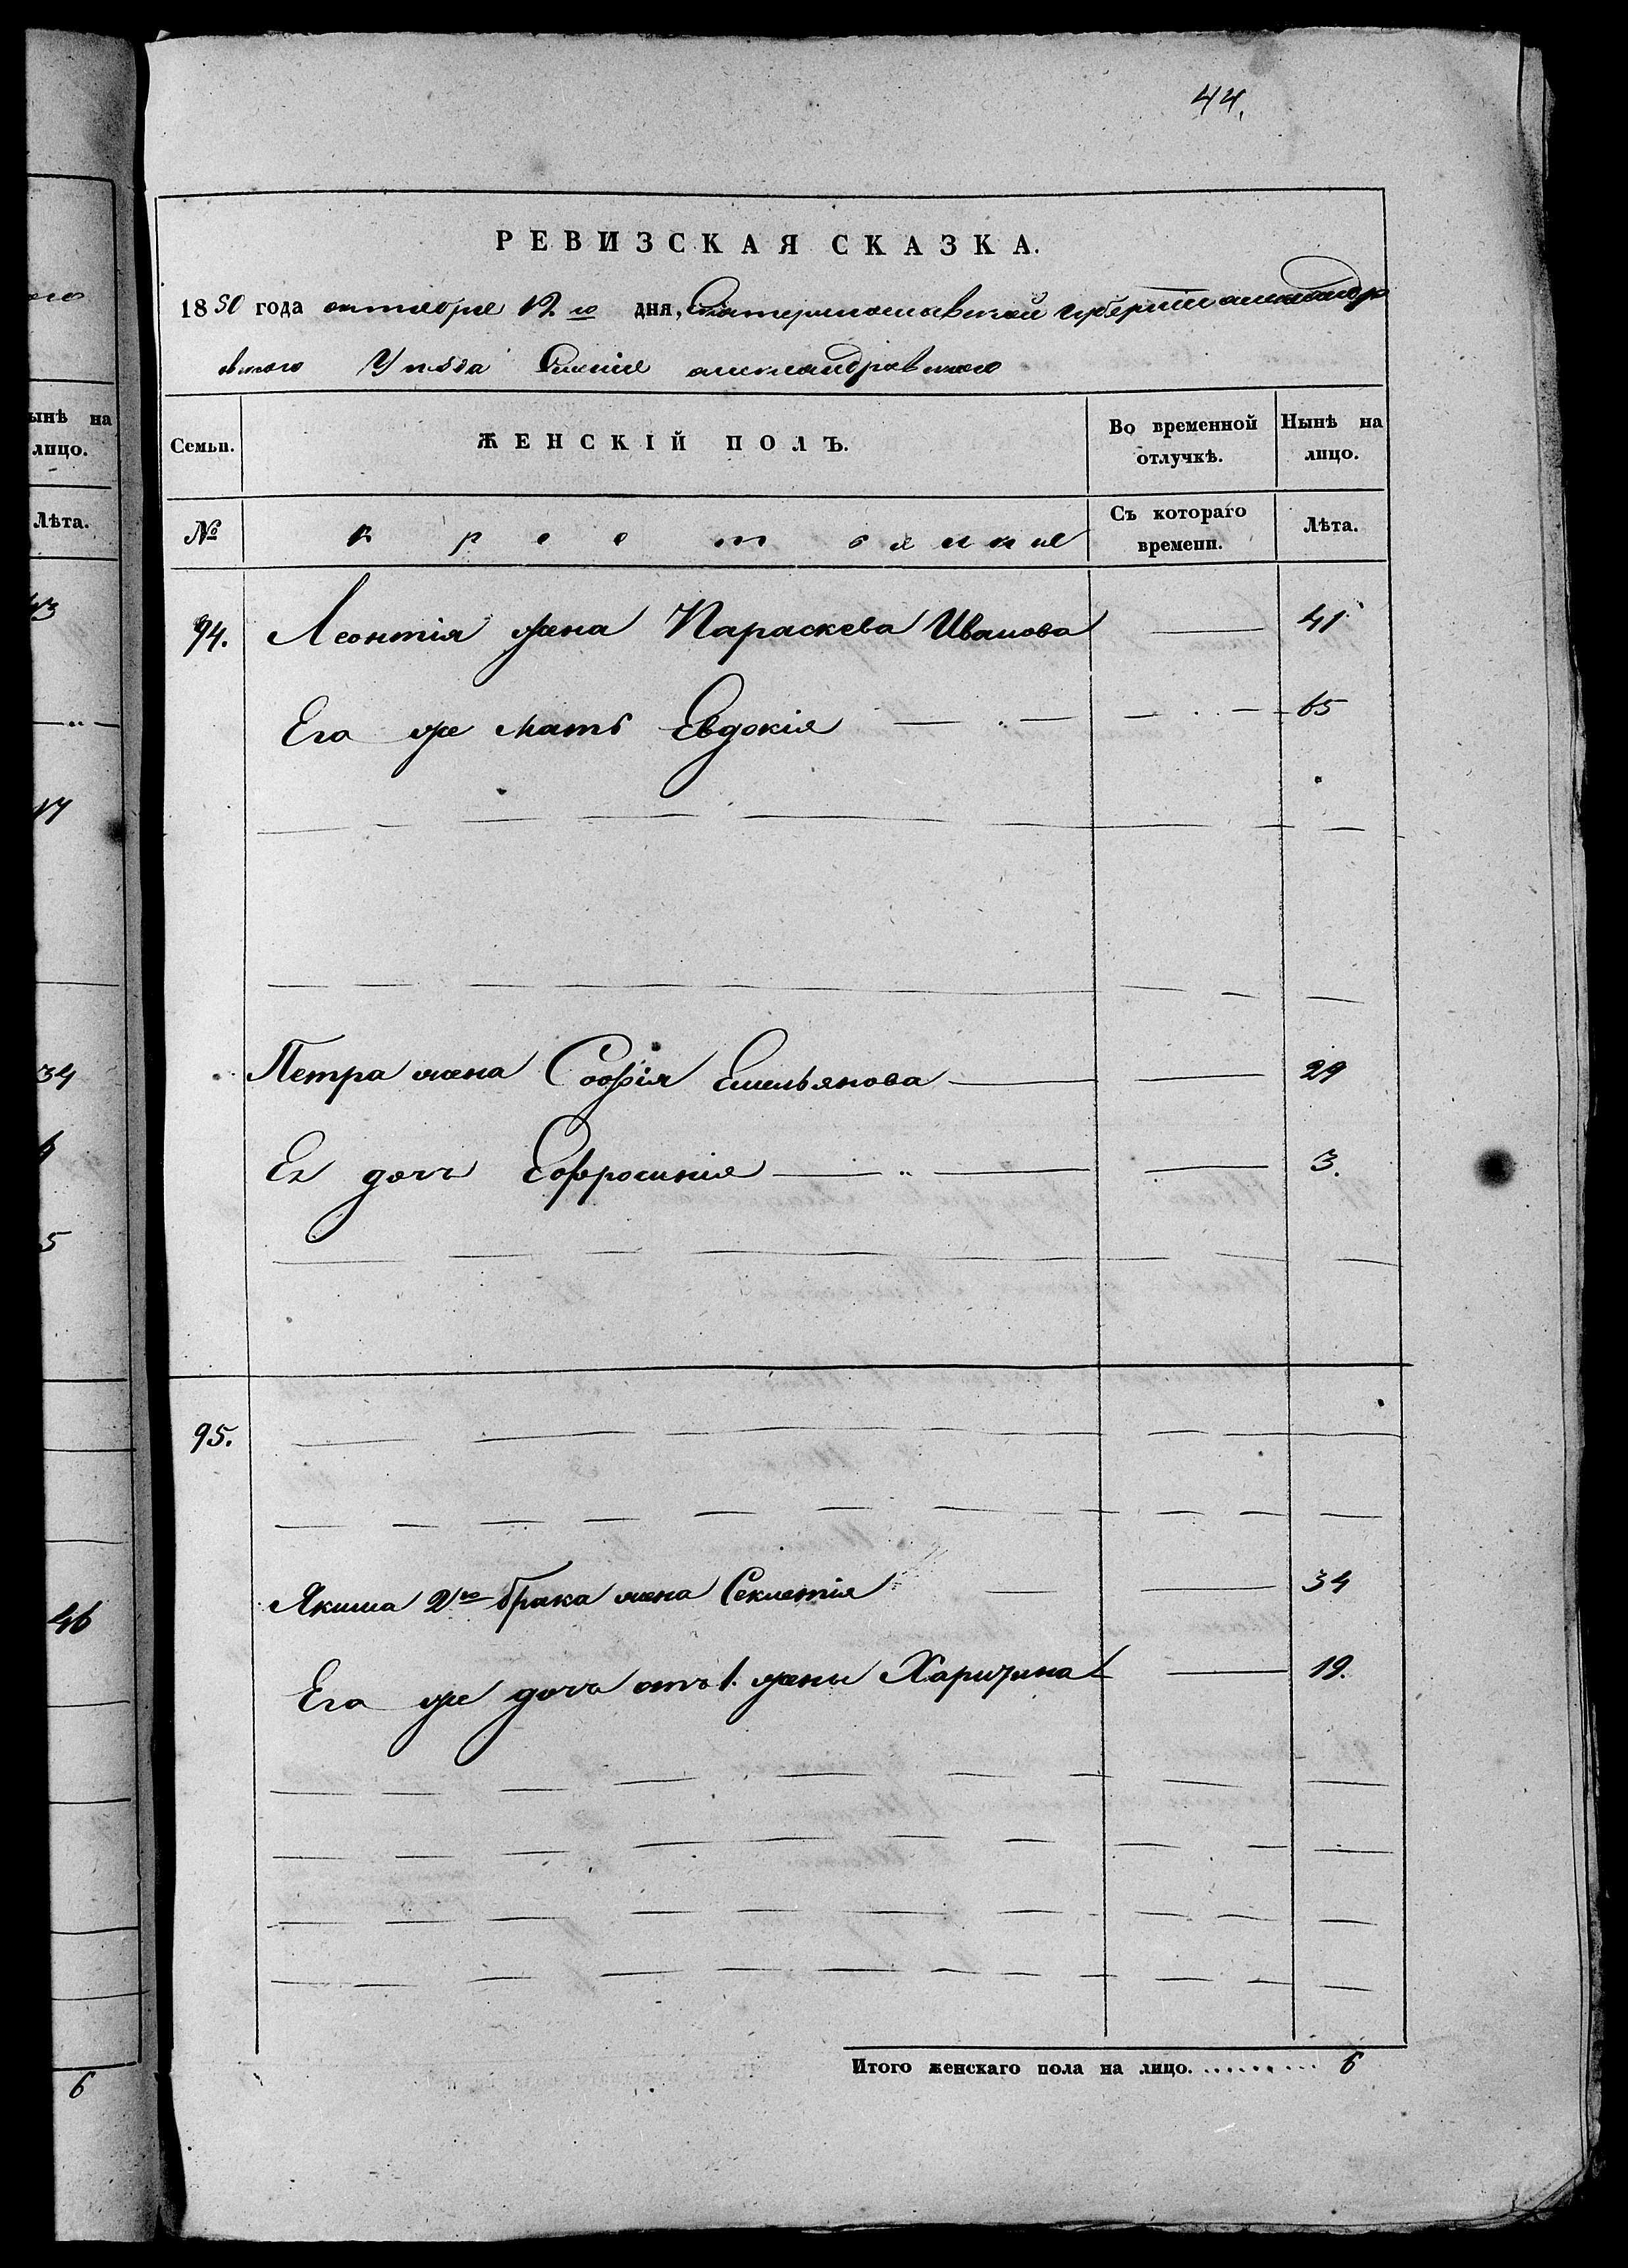 44.
РЕВИЗСКАЯ СКАЗКА.
1850 года октября 12.го дня, Екатеринославской губернии александро
вского Уѣзда Имѣние александровского
Семьи. ЖЕНСКІЙ ПОЛЪ. Во временной отлучкѣ. Нынѣ на лицо.
№ крестьянкие Съ котораго времени. Лѣта.
94. Леонтія жена Параскева Иванова — 41.
Его же мать Евдокія — 65
Петра жена Софія Емельянова — 29
Ея дочь Ефросинія — 3.
95.
Якима 2го брака жена Секлетія — 34
Его же дочь отъ 1. жены Харитина — 19.
Итого женскаго пола на лицо. . . . . . . . . 6
ого
ынѣ на
лицо.
Лѣта.
43
17
34
5
46
6